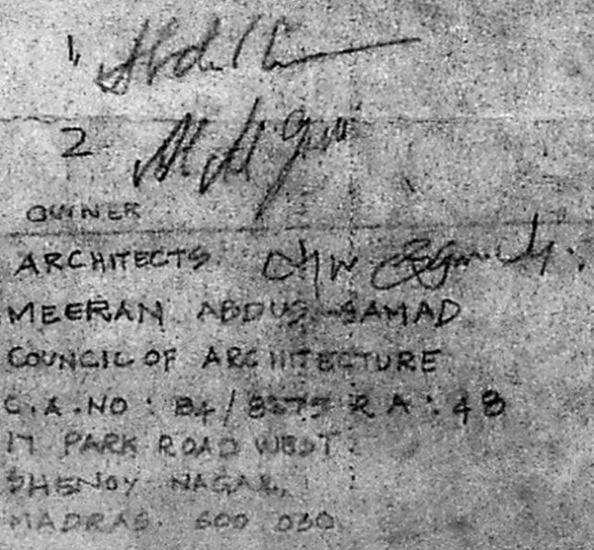 1,
2
OWNER
ARCHITECTS
MEERAN ABDUS SAMAD
COUNCIL OF ARCHITECTURE
C.A. NO : 84/8375 R A : 48
17 PARK ROAD WEST
SHENOY NAGAR,
MADRAS 600 030